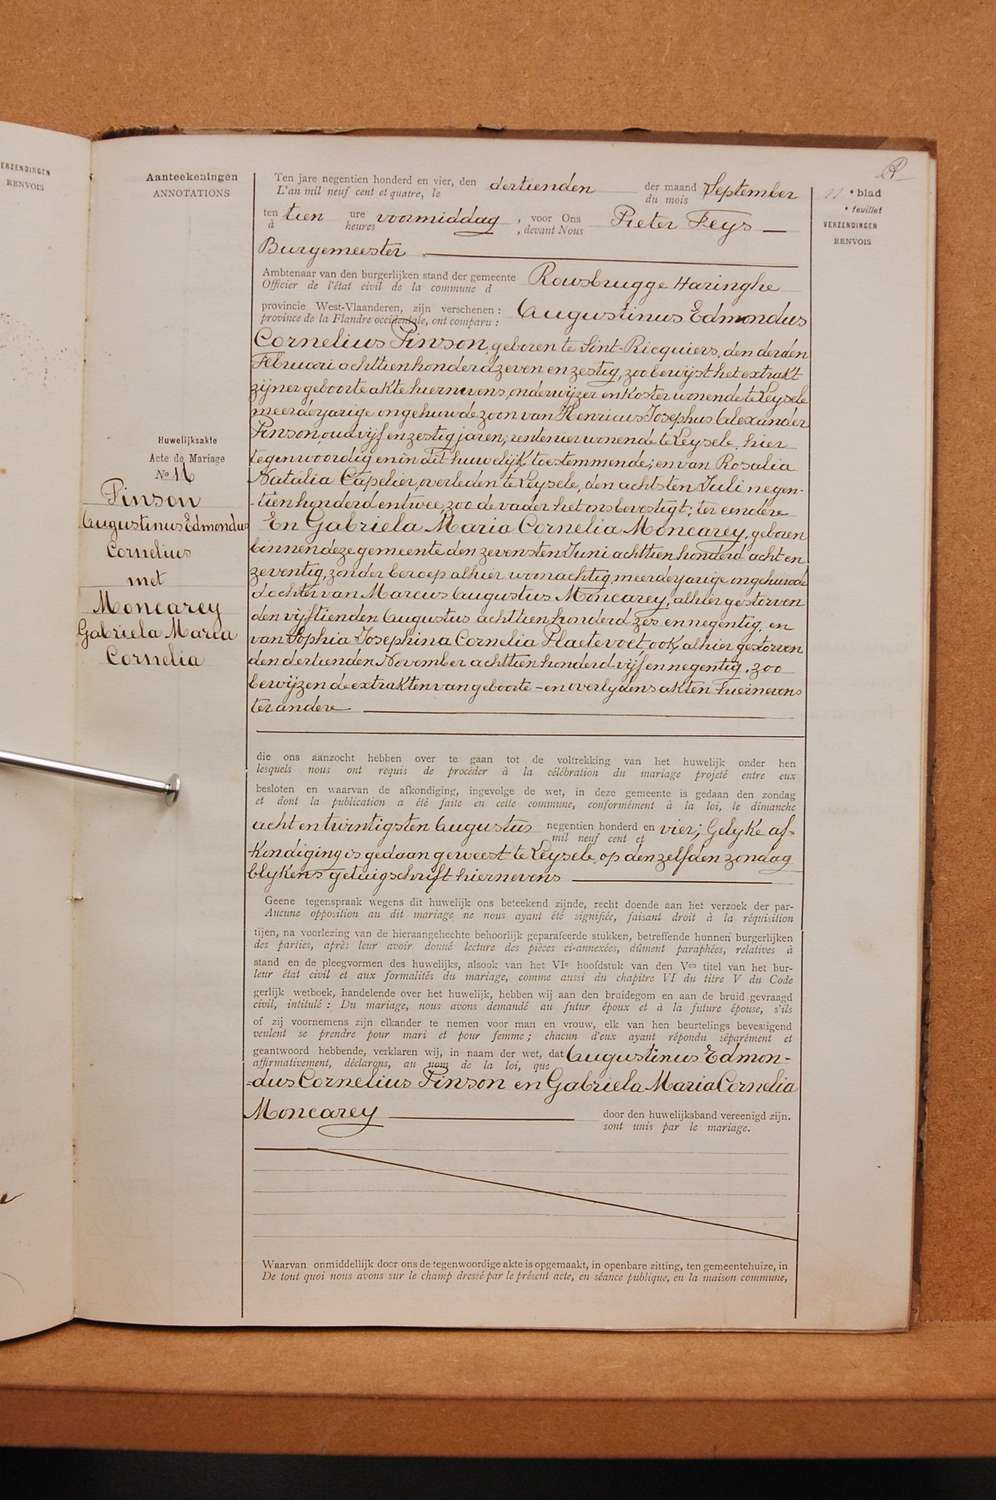 VERZENDINGEN
RENVOIS
Aanteekeningen
ANNOTATIONS
Huwelijksakte
Acte de Mariage
No 16
Pinson
Augustinus Edmondus
Cornelius
met
Moncarey
Gabriela Maria
Cornelia
Ten jare negentien honderd en vier, den dertienden der maand September
L'an mil neuf cent et quatre, le du mois
ten tien ure voormiddag, voor Ons Pieter Feys
à heures , devant Nous
Burgemeester
Ambtenaar van den burgerlijken stand der gemeente Rousbrugge Haringhe
Officier de l'état civil de la commune d
provincie West-Vlaanderen, zijn verschenen : Augustinus Edmondus
province de la Flandre occidentale, ont comparu :
Cornelius Pinson, geboren te Sint-Ricquiers, den derden
Februari achttien honderd zeven en zestig, zoo bewijst het extrakt
zijner geboorte akte hiernevens, onderwijzer en koster wonende te Leysele
meerderjarige ongehuwde zoon van Henricus Josephus Alexander
Pinson, oud vijf en zestig jaren, rentenier wonende te Leysele, hier
tegenwoordig en in dit huwelijk toestemmende; en van Rosalia
Natalia Capelier, overleden te Leysele, den achtsten Juli negen-
-tien honderd en twee, zoo de vader het ons bevestigt; ter eendere
En Gabriela Maria Cornelia Moncarey, geboren
binnen deze gemeente den zevensten Juni achttien honderd acht en
zeventig, zonder beroep alhier woonachtig, meerderjarige ongehuwde
dochter van Marcus Augustus Moncarey, alhier gestorven
den vijftienden Augustus achttien honderd zes en negentig, en
van Sophia Josephina Cornelia Plaetevoet, ook alhier gestorven
den dertienden November achttien honderd vijf en negentig, zoo
bewijzen de extrakten van geboorte- en overlydens akten hiernevens
ter andere
die ons aanzocht hebben over te gaan tot de voltrekking van het huwelijk onder hen
lesquels nous ont requis de procéder à la célébration du mariage projeté entre eux
besloten en waarvan de afkondiging, ingevolge de wet, in deze gemeente is gedaan den zondag
et dont la publication a été faite en cette commune, conformément à la loi, le dimanche
acht en twintigsten Augustus negentien honderd en vier; Gelyke af-
mil neuf cent et
-kondiging is gedaan geweest te Leysele, op den zelfden zondag
blykens getuigschrift hiernevens
Geene tegenspraak wegens dit huwelijk ons beteekend zijnde, recht doende aan het verzoek der par-
Aucune opposition au dit mariage ne nous ayant été signifiée, faisant droit à la réquisition
tijen, na voorlezing van de hieraangehechte behoorlijk geparafeerde stukken, betreffende hunnen burgerlijken
des parties, après leur avoir donné lecture des pièces ci-annexées, dûment paraphées, relatives à
stand en de pleegvormen des huwelijks, alsook van het VIe hoofdstuk van den Ven titel van het bur-
leur état civil et aux formalités du mariage, comme aussi du chapitre VI du titre V du Code
gerlijk wetboek, handelende over het huwelijk, hebben wij aan den bruidegom en aan de bruid gevraagd
civil, intitulé : Du mariage, nous avons demandé au futur époux et à la future épouse, s'ils
of zij voornemens zijn elkander te nemen voor man en vrouw, elk van hen beurtelings bevestigend
veulent se prendre pour mari et pour femme ; chacun d'eux ayant répondu séparément et
geantwoord hebbende, verklaren wij, in naam der wet, dat Augustinus Edmon-
affirmativement, déclarons, au nom de la loi, que
-dus Cornelius Pinson en Gabriela Maria Cornelia
Moncarey door den huwelijksband vereenigd zijn.
sont unis par le mariage.
Waarvan onmiddellijk door ons de tegenwoordige akte is opgemaakt, in openbare zitting, ten gemeentehuize, in
De tout quoi nous avons sur le champ dressé par le présent acte, en séance publique, en la maison commune,
e blad
e feuillet
VERZENDINGEN
RENVOIS